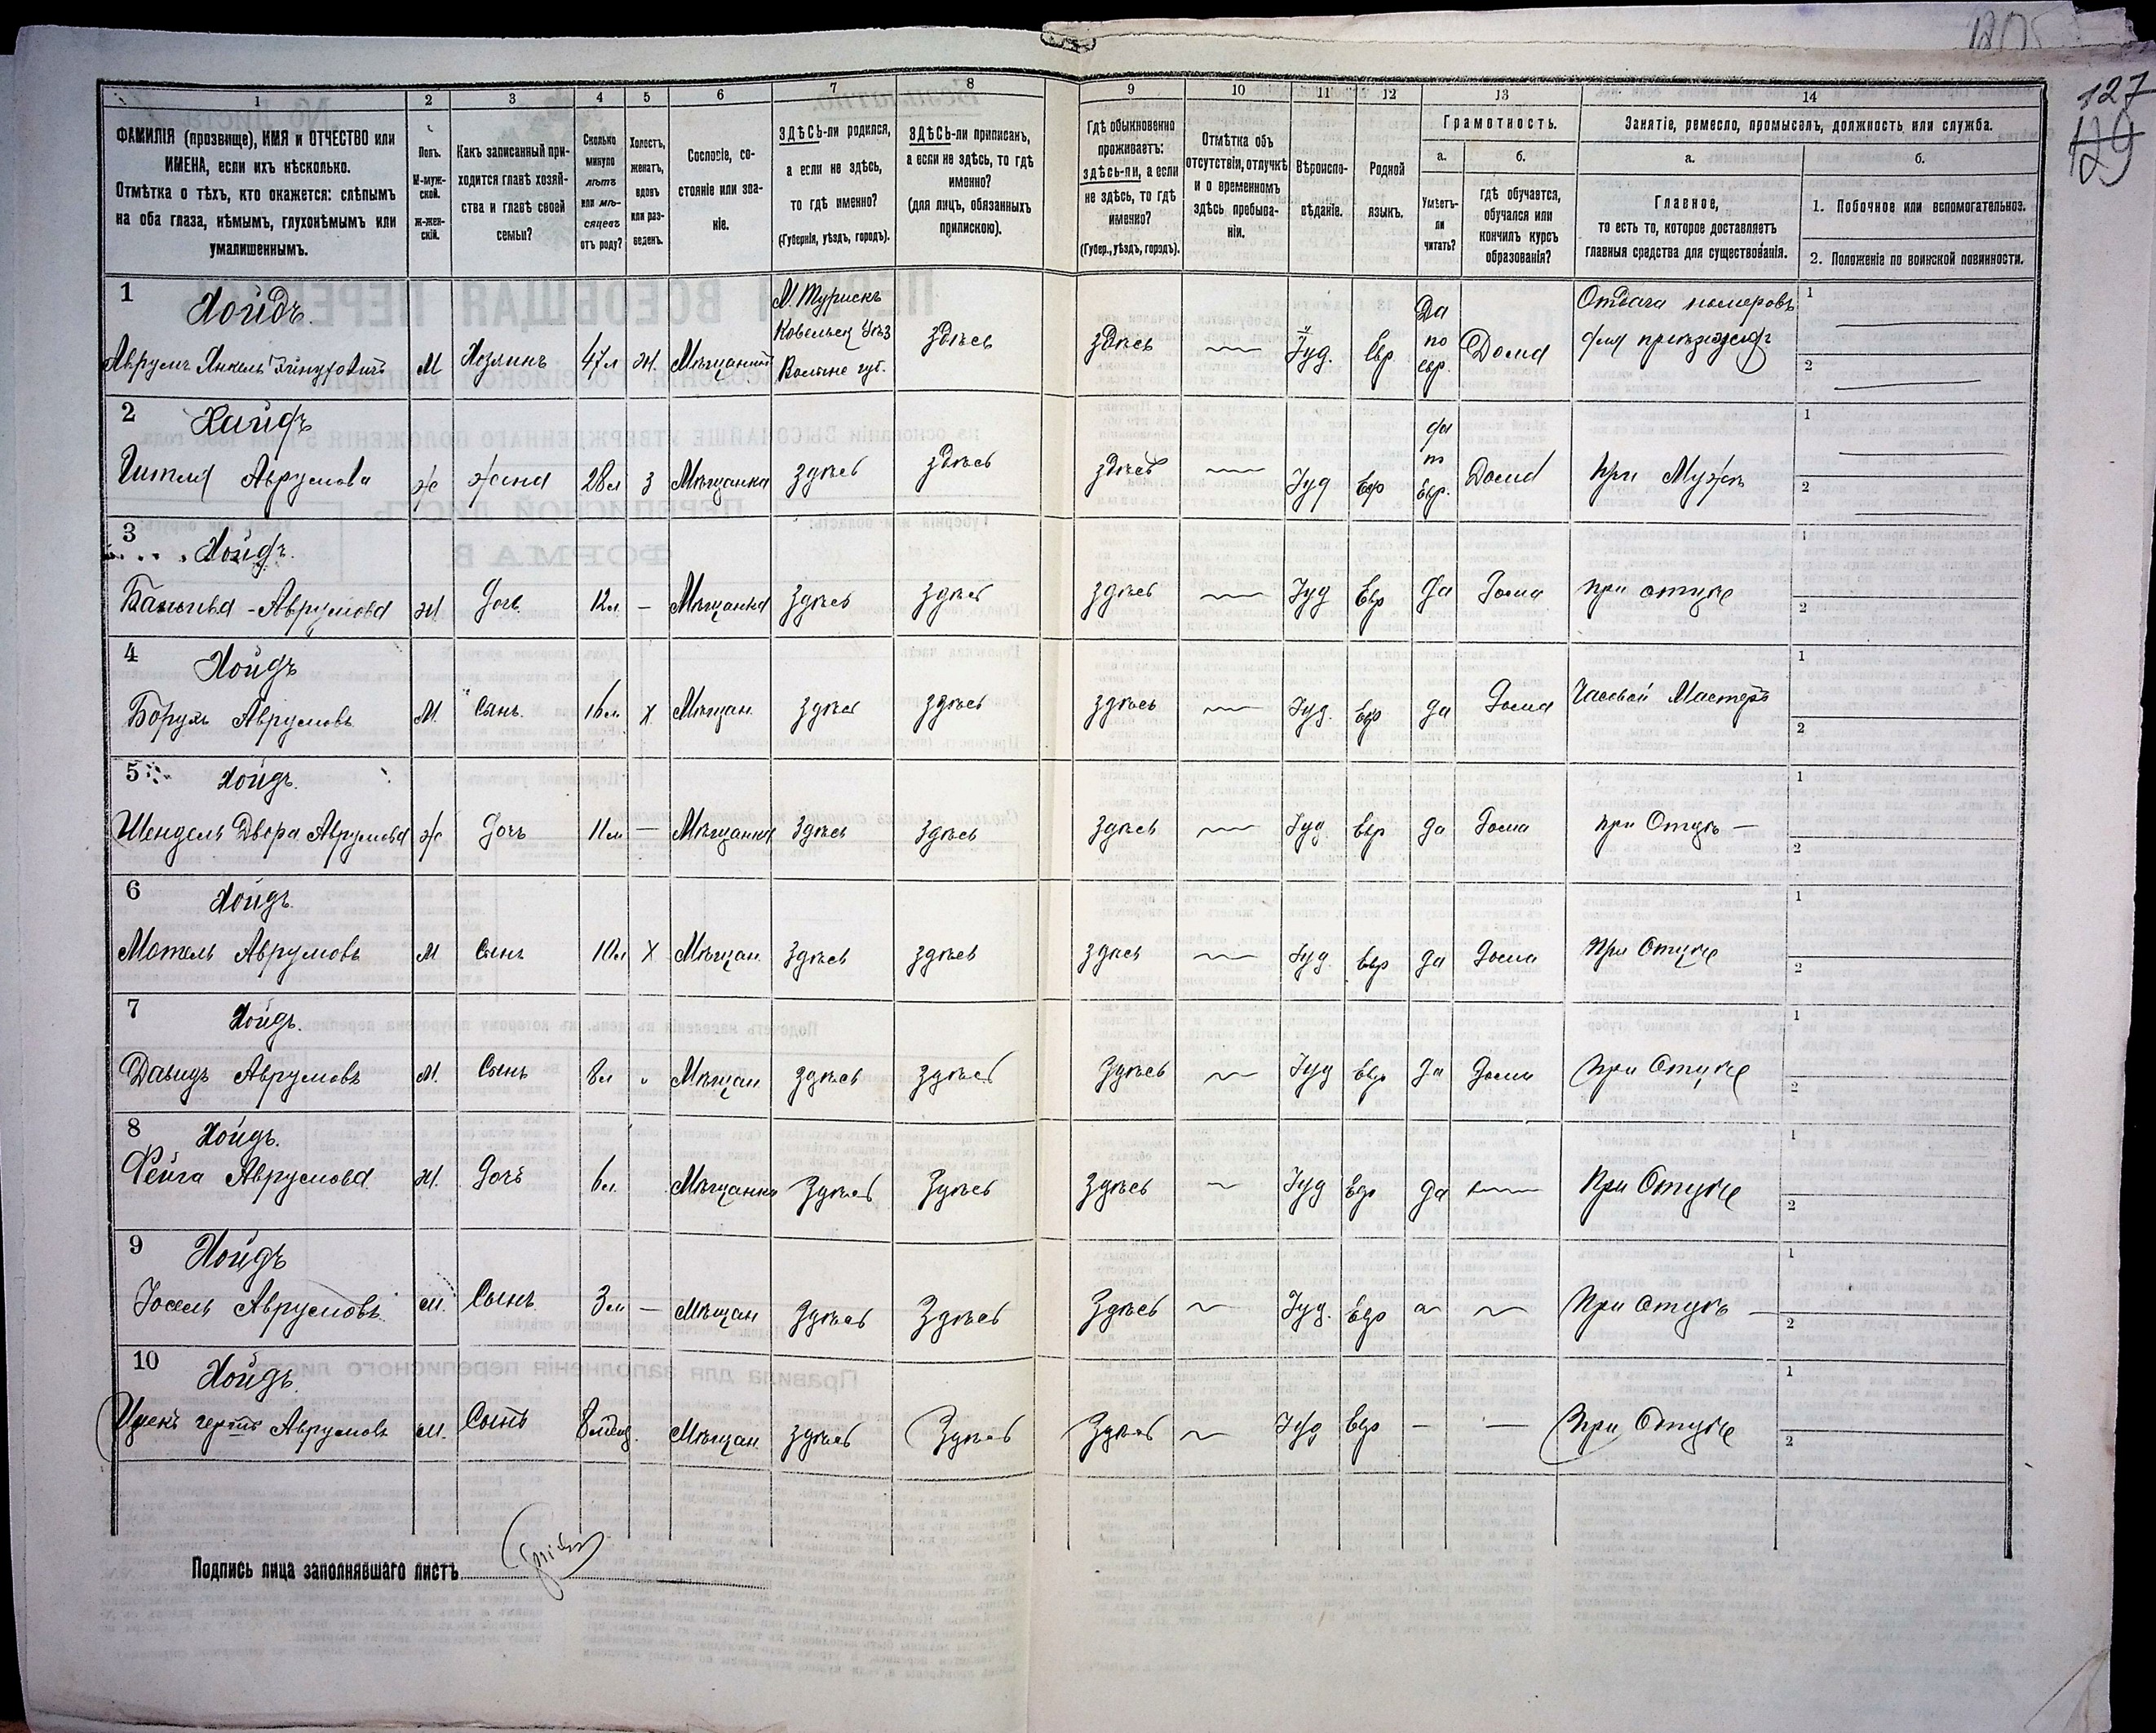 1805
127
129
1 2 3 4 5 6 7 8 9 10 11 12 13 14
ФАМИЛІЯ (прозвище), ИМЯ и ОТЧЕСТВО или
ИМЕНА, если ихъ нѣсколько.
Отмѣтка о тѣхъ, кто окажется: слѣпымъ
на оба глаза, нѣмымъ, глухонѣмымъ или
умалишеннымъ.
Полъ.
М-муж-
ской.
Ж-жен-
скій.
Какъ записанный при-
ходится главѣ хозяй-
ства и главѣ своей
семьи?
Сколько
минуло
лѣтъ
или мѣ-
сяцевъ
отъ роду?
Холостъ,
женатъ,
вдовъ
или раз-
веденъ.
Сословіе, со-
стояніе или зва-
ніе.
ЗДѢСЬ-ли родился,
а если не здѣсь,
то гдѣ именно?
(Губернія, уѣздъ, городъ).
ЗДѢСЬ-ли приписанъ,
а если не здѣсь, то гдѣ
именно?
(для лицъ, обязанныхъ
припискою).
Гдѣ обыкновенно
проживаетъ:
здѣсь-ли, а если
не здѣсь, то гдѣ
именно?
(Губер., уѣздъ, городъ).
Отмѣтка объ
отсутствіи, отлучкѣ
и о временномъ
здѣсь пребыва-
ніи.
Вѣроиспо-
вѣданіе.
Родной
языкъ.
Грамотность.
а.
Умѣетъ-
ли
читать?
б.
гдѣ обучается,
обучался или
кончилъ курсъ
образованія?
Занятіе, ремесло, промыселъ, должность или служба.
а.
Главное,
то есть то, которое доставляетъ
главныя средства для существованія.
б.
1. Побочное или вспомогательное.
2. Положеніе по воинской повинности.
1 Хойдъ. М. Турискъ Да Отдача номеровъ 1
Ковельск Уѣз по для пріѣзжихъ
Аврумъ Янкель М Хозяинъ 47 л Ж. Мѣщанинъ Волынс губ. здѣсь здѣсь Іуд. Евр евр. Дома 2
2 Хайдъ да 1
Гитля Аврумова ж жена 28 л З Мѣщанка здѣсь здѣсь здѣсь Іуд Евр по Евр. Дома При Мужѣ 2
3 Хойдъ. 1
Аврумова Ж Дочь 12 л. — Мѣщанка здѣсь здѣсь здѣсь Іуд Евр да Дома при отцѣ 2
4 Хойдъ 1
Борухъ Аврумовъ М. Сынъ. 16 л. Х Мѣщан. здѣсь здѣсь здѣсь Іуд. Евр да Дома Часовой Мастеръ 2
5 Хойдъ. 1
Шендель Двора Аврумова ж Дочь 11 л — Мѣщанка здѣсь здѣсь здѣсь Іуд. Евр да Дома при Отцѣ — 2
6 Хойдъ. 1
Мотель Аврумовъ М Сынъ 10 л Х Мѣщан. здѣсь здѣсь здѣсь Іуд. Евр да Дома При Отцѣ 2
7 Хойдъ. 1
Давидъ Аврумовъ М. Сынъ 8 л Мѣщан здѣсь здѣсь здѣсь Іуд Евр да Дома При Отцѣ 2
8 Хойдъ. 1
Фейга Аврумова Ж. Дочь 6 л. Мѣщанка здѣсь здѣсь здѣсь Іуд Евр да При Отцѣ 2
9 Хойдъ 1
Іосель Аврумовъ. М. Сынъ 3 л — Мѣщан здѣсь здѣсь здѣсь Іуд. Евр При отцѣ — 2
10 Хойдъ. 1
Аврумовъ М. Сынъ Мѣщан. здѣсь здѣсь здѣсь Іуд Евр — — При Отцѣ 2
Подпись лица заполнявшаго листъ